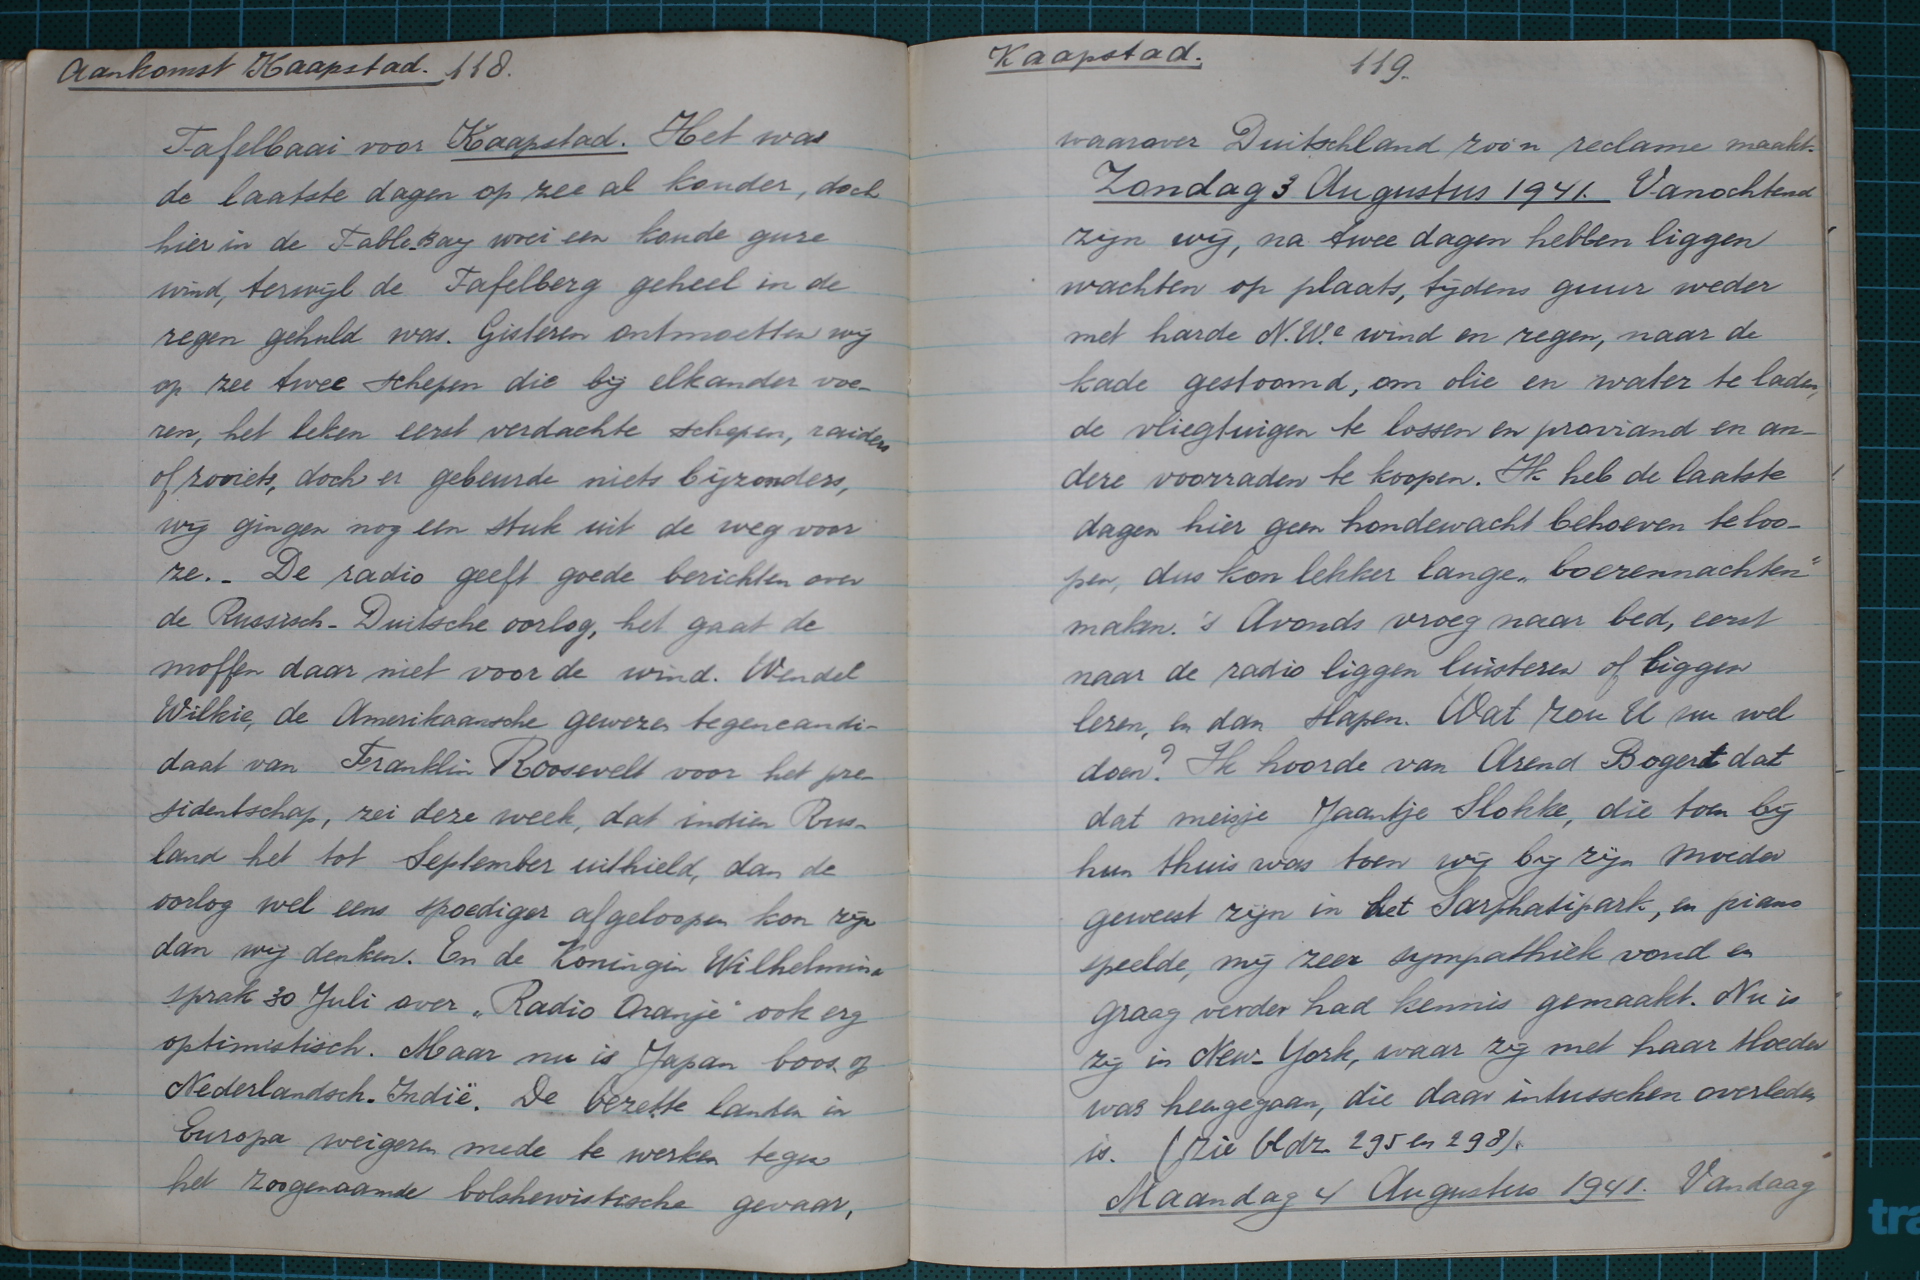 Aankomst Kaapstad. 118.
Tafelbaai voor Kaapstad. Het was
de laatste dagen op zee al kouder, doch
hier in de Table-Bay woei een koude gure
wind, terwijl de Tafelberg geheel in de
regen gehuld was. Gisteren ontmoetten wij
op zee twee schepen die bij elkander voe-
ren, het leken eerst verdachte schepen, raiders
of zooiets, doch er gebeurde niets bijzonders,
wij gingen nog een stuk uit de weg voor
ze. - De radio geeft goede berichten over
de Russisch-Duitsche oorlog, het gaat de
moffen daar niet voor de wind. Wendel
Wilkie, de Amerikaansche gewezen tegencandi-
daat van Franklin Roosevelt voor het pre-
sidentschap, zei deze week, dat indien Rus-
land het tot September uithield, dan de
oorlog wel eens spoediger afgeloopen kon zijn
dan wij denken. En de Koningin Wilhelmina
sprak 30 Juli over „Radio Oranje" ook erg
optimistisch. Maar nu is Japan boos op
Nederlandsch-Indië. De bezette landen in
Europa weigeren mede te werken tegen
het zoogenaamde bolshewistische gevaar,
Kaapstad. 119.
waarover Duitschland zoo'n reclame maakt.
Zondag 3 Augustus 1941. Vanochtend
zijn wij, na twee dagen hebben liggen
wachten op plaats, tijdens guur weder
met harde N.W.e wind en regen, naar de
kade gestoomd, om olie en water te laden,
de vliegtuigen te lossen en proviand en an-
dere voorraden te koopen. Ik heb de laatste
dagen hier geen hondewacht behoeven te loo-
pen, dus kon lekker lange „boerennachten"
maken. 's Avonds vroeg naar bed, eerst
naar de radio liggen luisteren of liggen
lezen, en dan slapen. Wat zou U nu wel
doen? Ik hoorde van Arend Bogert dat
dat meisje Jaantje Slokke, die toen bij
hun thuis was toen wij bij zijn Moeder
geweest zijn in het Sarphatipark, en piano
speelde, mij zeer sympathiek vond en
graag verder had kennis gemaakt. Nu is
zij in New-York, waar zij met haar Moeder
was heengegaan, die daar intusschen overleden
is. (zie bldz. 295 en 298).
Maandag 4 Augustus 1941. Vandaag
tra